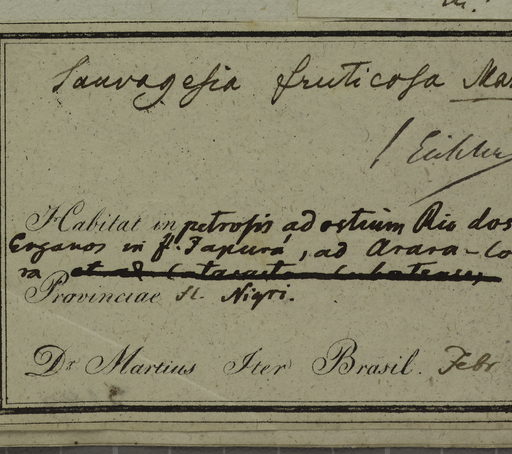 Sauvagesia fruticosa Mar
Eichler
Habitat in petrosis ad ostium Rio dos
Enganos in fl. Japurá, ad Arara-Co
ra et ad Cataractas
Provinciae fl. Nigri.
Dr. Martius Iter Brasil. Febr